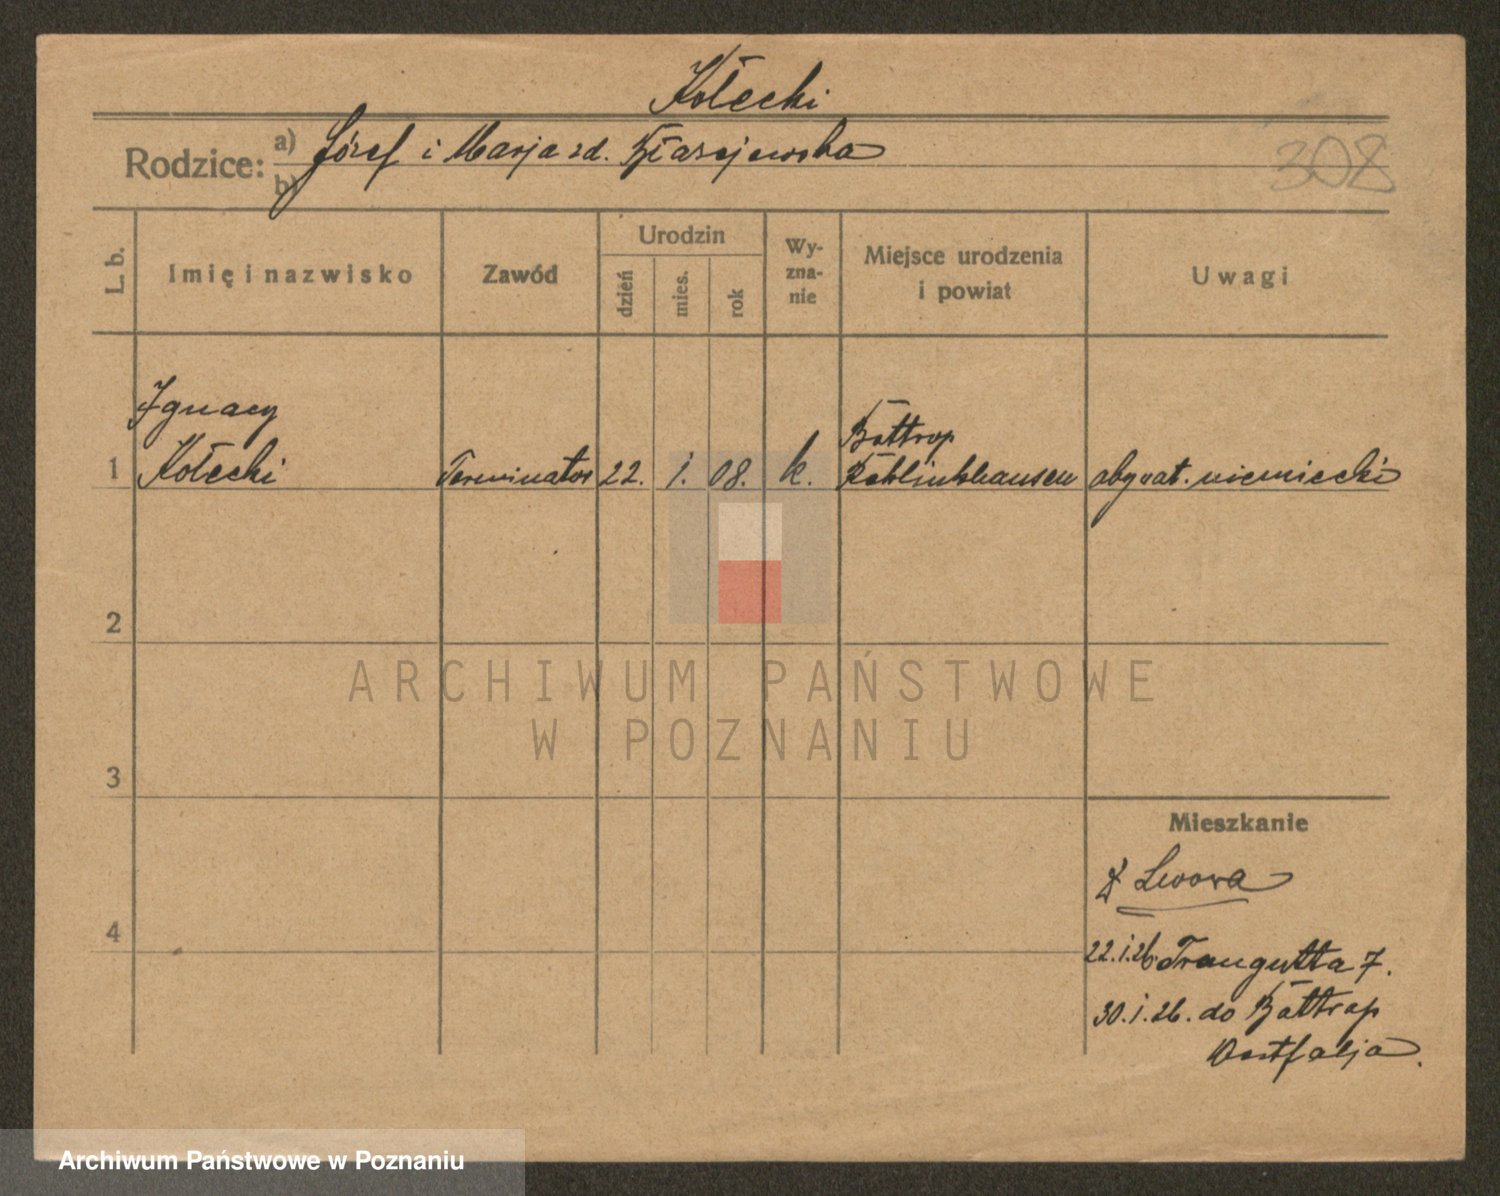 Kołecki
Rodzice: a) Józef i Marja zd. Błażejewska
b)
308
L. b.
Imię i nazwisko
Zawód
Urodzin
dzień
mies.
rok
Wy-
zna-
nie
Miejsce urodzenia
i powiat
Uwagi
Ignacy
Bottrop
1 Kołecki Terminator 22. i. 08. k. Reklinkhausen obywat. niemiecki
2
ARCHIWUM PAŃSTWOWE
W POZNANIU
3
Mieszkanie
Z Lwowa
4
22.i.26. Traugutta 7.
30.i.26. do Bottrop
Westfalja.
Archiwum Państwowe w Poznaniu